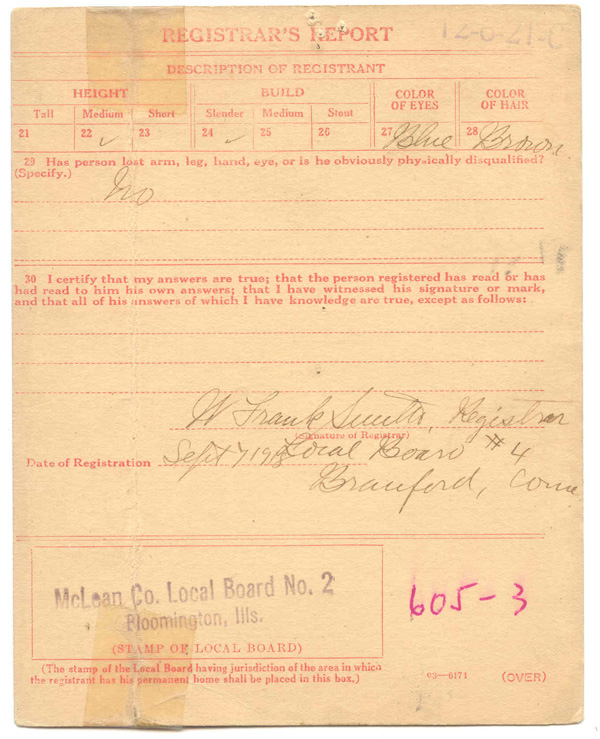 REGISTRAR'S REPORT
12-6-21-C
DESCRIPTION OF REGISTRANT
HEIGHT BUILD COLOR OF EYES COLOR OF HAIR
Tall Medium Short Slender Medium Stout
21 22 ✓ 23 24 ✓ 25 26 27 Blue 28 Brown
29 Has person lost arm, leg, hand, eye, or is he obviously physically disqualified?
(Specify.)
No
30 I certify that my answers are true; that the person registered has read or has
had read to him his own answers; that I have witnessed his signature or mark,
and that all of his answers of which I have knowledge are true, except as follows:
W Frank Smith, Registrar
(Signature of Registrar)
Date of Registration Sept 7 1918 Local Board #4
Branford, Conn
McLean Co. Local Board No. 2
Bloomington, Ills.
(STAMP OF LOCAL BOARD)
605-3
(The stamp of the Local Board having jurisdiction of the area in which
the registrant has his permanent home shall be placed in this box.)
03—6171 (OVER)